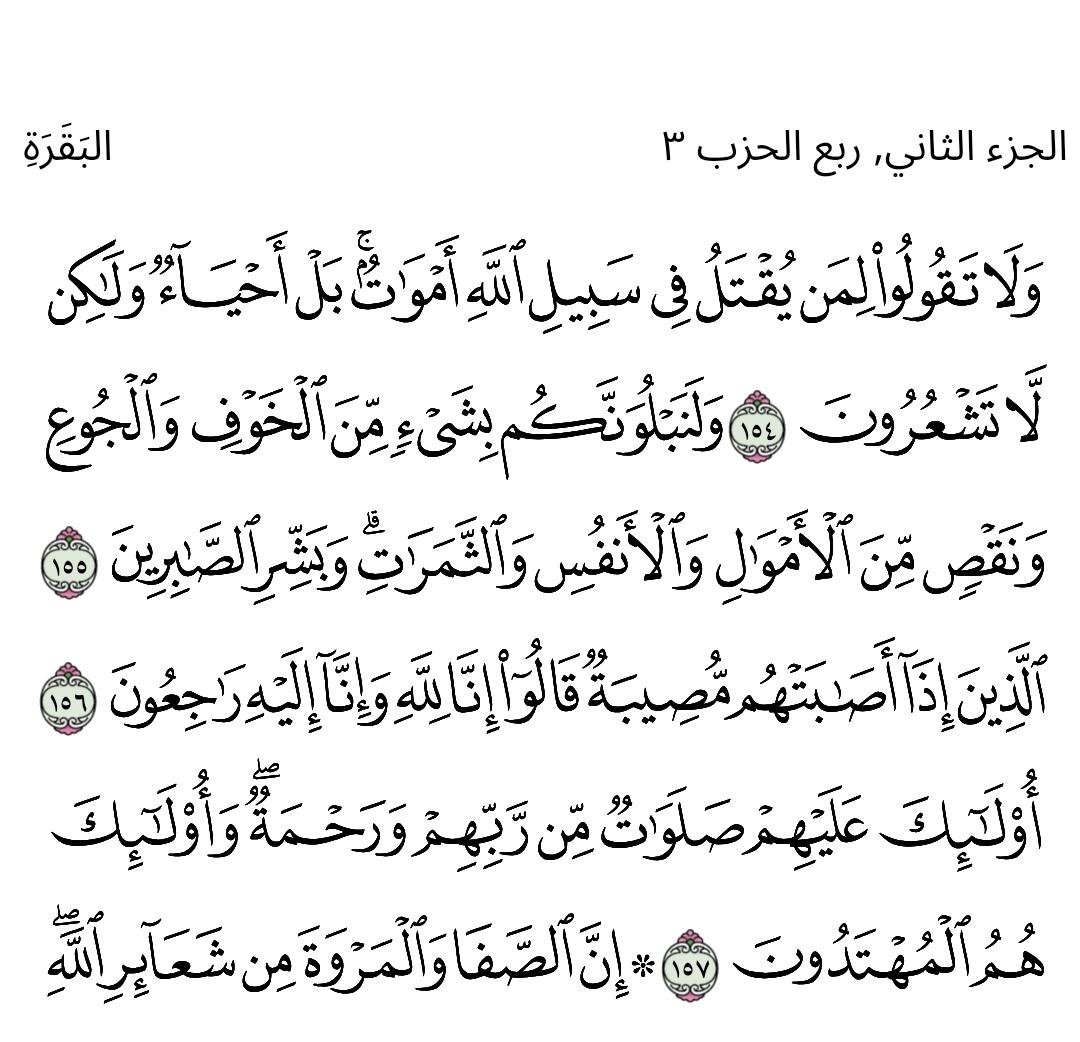 الجزء الثاني, ربع الحزب ٣
البَقَرَةِ
وَلَا تَقُولُوا۟ لِمَن يُقْتَلُ فِى سَبِيلِ ٱللَّهِ أَمْوَٰتٌۢ ۚ بَلْ أَحْيَآءٌ وَلَـٰكِن
لَّا تَشْعُرُونَ ١٥٤ وَلَنَبْلُوَنَّكُم بِشَىْءٍ مِّنَ ٱلْخَوْفِ وَٱلْجُوعِ
وَنَقْصٍ مِّنَ ٱلْأَمْوَٰلِ وَٱلْأَنفُسِ وَٱلثَّمَرَٰتِ ۗ وَبَشِّرِ ٱلصَّـٰبِرِينَ ١٥٥
ٱلَّذِينَ إِذَآ أَصَـٰبَتْهُم مُّصِيبَةٌ قَالُوٓا۟ إِنَّا لِلَّهِ وَإِنَّآ إِلَيْهِ رَٰجِعُونَ ١٥٦
أُو۟لَـٰٓئِكَ عَلَيْهِمْ صَلَوَٰتٌ مِّن رَّبِّهِمْ وَرَحْمَةٌ ۖ وَأُو۟لَـٰٓئِكَ
هُمُ ٱلْمُهْتَدُونَ ١٥٧ ۞ إِنَّ ٱلصَّفَا وَٱلْمَرْوَةَ مِن شَعَآئِرِ ٱللَّهِ ۖ